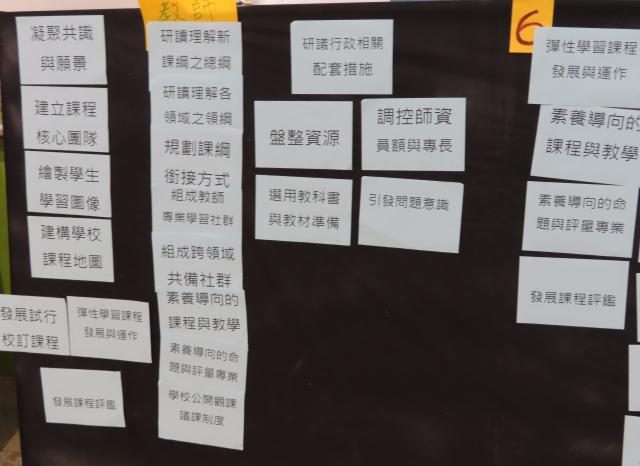 凝聚共識
與願景
建立課程
核心團隊
繪製學生
學習圖像
建構學校
課程地圖
發展試行
校訂課程
彈性學習課程
發展與運作
發展課程評鑑
教師
研讀理解新
課綱之總綱
研讀理解各
領域之領綱
規劃課綱
銜接方式
組成教師
專業學習社群
組成跨領域
共備社群
素養導向的
課程與教學
素養導向的命
題與評量專業
學校公開觀課
議課制度
研議行政相關
配套措施
盤整資源
調控師資
員額與專長
選用教科書
與教材準備
引發問題意識
6
彈性學習課程
發展與運作
素養導向的
課程與教學
素養導向的命
題與評量專業
發展課程評鑑